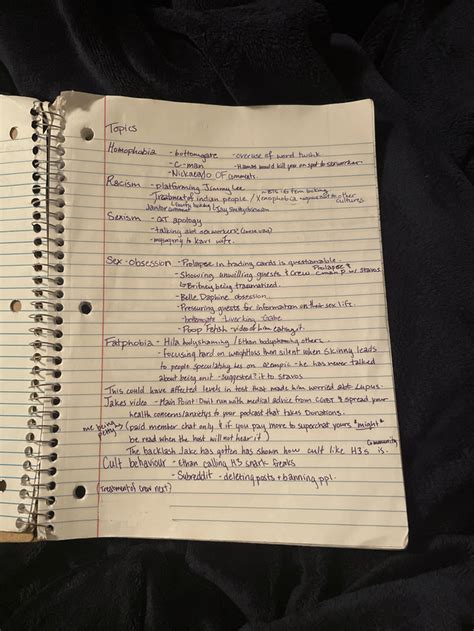 Topics
Homophobia - bottomgate - overuse of word twink
- C-man - Hamas would kill you on spot to sexworker
- Nickacado OF comments
Racism - platforming Jimmy Lee
Treatment of indian people / Xenophobia other cultures
Janitor comment
Sexism - GT apology
- talking abt sexworkers
- kavs wife.
Sex-obsession - Prolapse in trading cards is questionable
- Showing unwilling guests & crew Prolapse & cman p. w/ stavos
↳ Britney being traumatised.
- Belle Delphine obsession.
- Pressuring guests for information on their sex life.
- bottomgate
- Poop Fetish video of him eating it.
Fatphobia - Hila bodyshaming / Ethan bodyshaming others.
- focusing hard on weightloss than silent when skinny leads
to people speculating his on ozempic - he has never talked
about being on it - suggested it to stavos
This could have affected levels in test that made him worried abt Lupus.
Jakes video - Main Point: Don't run with medical advice from & spread your
health concerns/anxietys to your podcast that takes Donations.
me being petty (paid member chat only & if you pay more to superchat yours *might*
be read when the host will not hear it)
The backlash Jake has gotten has shown how cult like H3s community is.
Cult behaviour - Ethan calling H3 snark freaks
- Subreddit - deleting posts + banning ppl.
(Treatment of crew next?)